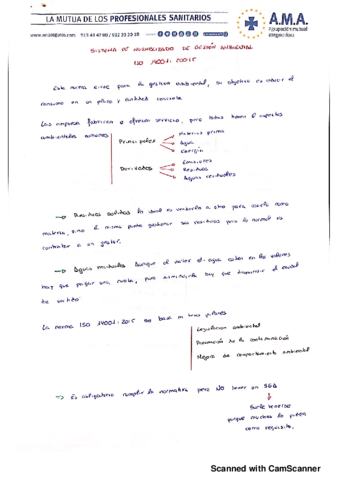 LA MUTUA DE LOS PROFESIONALES SANITARIOS
A.M.A.
SISTEMA DE NORMALIZADO DE GESTIÓN AMBIENTAL
ISO 14001:2015
Esta norma sirve para la gestión ambiental, su objetivo es reducir el
consumo en un plazo y cantidad concreta.
Las empresas fabrican u ofrecen servicios, pero todas tienen aspectos
ambientales comunes
Principales
Materia prima
Agua
Energía
Derivados
Emisiones
Residuos
Aguas residuales
→ Residuos sólidos la cual es venderla a otro para usarlo como
materia, sino el mismo puede gestionar sus residuos pero lo normal es
contratar a un gestor.
→ Aguas residuales Aunque el valor del agua esten en los valores
hay que pagar una cuota, para disminuirla hay que disminuir el caudal
de vertido
La norma ISO 14001:2015 se basa en tres pilares
Legislación ambiental
Prevención de la contaminación
Mejora de comportamiento ambiental
→ Es obligatorio cumplir la normativa pero NO tener un SGA
Suele tenerse
porque muchos lo piden
como requisito.
Scanned with CamScanner